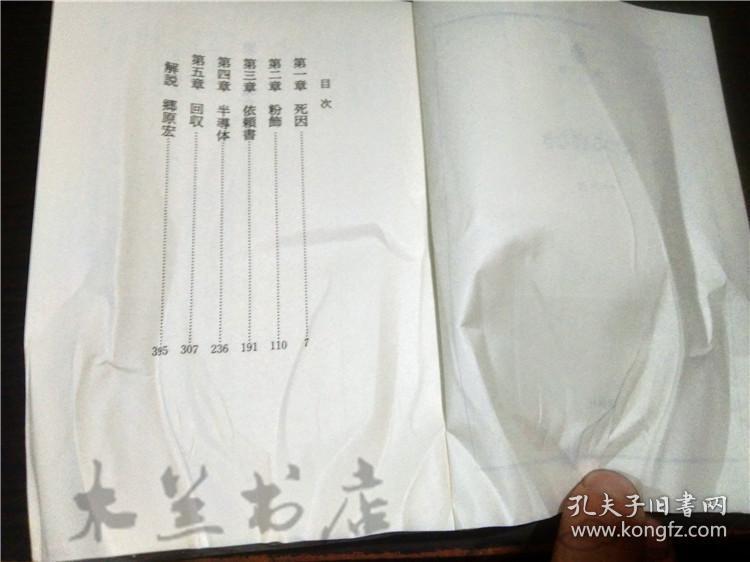 目次
第一章 死因 7
第二章 粉飾 110
第三章 依頼書 191
第四章 半導体 236
第五章 回収 307
解説 郷原宏 395
木兰书店
孔夫子旧书网
www.kongfz.com